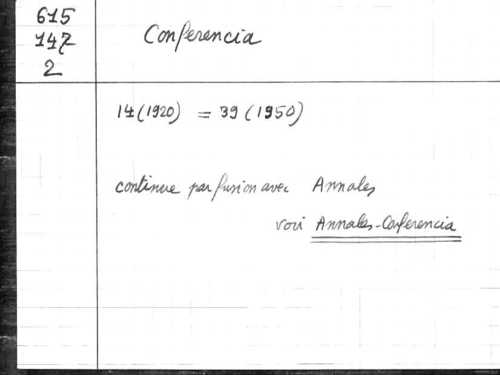 615
147
2
Conferencia
14 (1920) = 39 (1950)
continue par fusion avec Annales
voir Annales-Conferencia